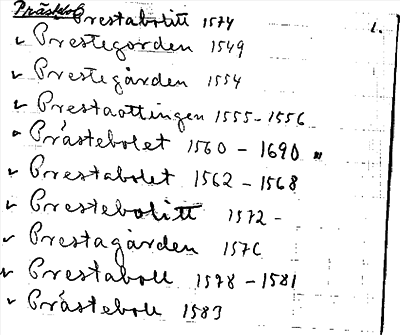 Prästbol Prestabolitt 1574 1.
✓ Prestegorden 1549
✓ Prestegården 1554
✓ Prestaottingen 1555-1556
Prästebolet 1560 - 1690 "
✓ Prestabolet 1562 - 1568
✓ Prestebolitt 1572 -
✓ Prestagården 1576
✓ Prestaboll 1578 - 1581
✓ Prästeboll 1583